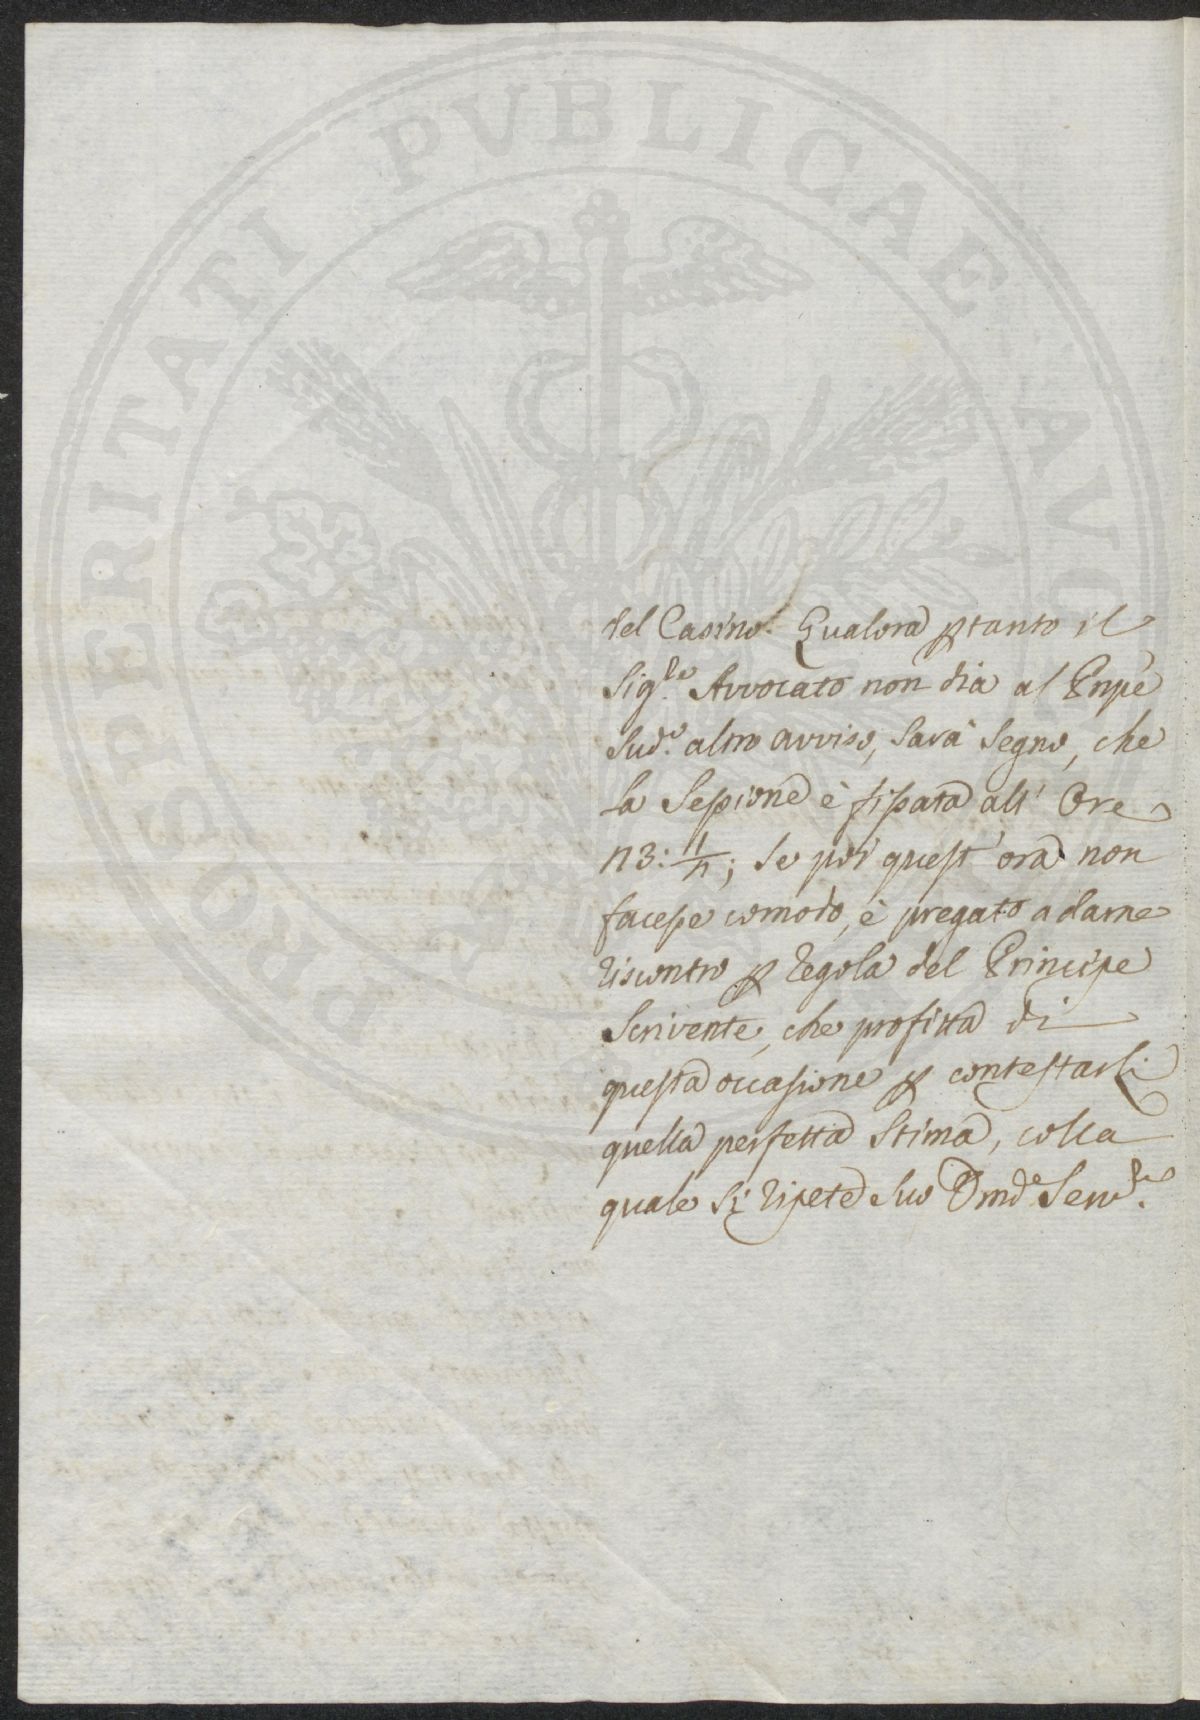 PROSPERITATI PUBLICAE AUGENDAE
del Casino. Qualora ptanto il
Sig.re Avvocato non dia al Pnpe
Sud.o altro avviso, sarà segno, che
la Sessione è fissata all' Ore
23: 1/2; se poi quest' ora non
facesse comodo, è pregato a darne
riscontro p regola del Principe
Scrivente, che profitta di
questa occasione p contestarli
quella perfetta stima, colla
quale si ripete suo Dmo Serv.re